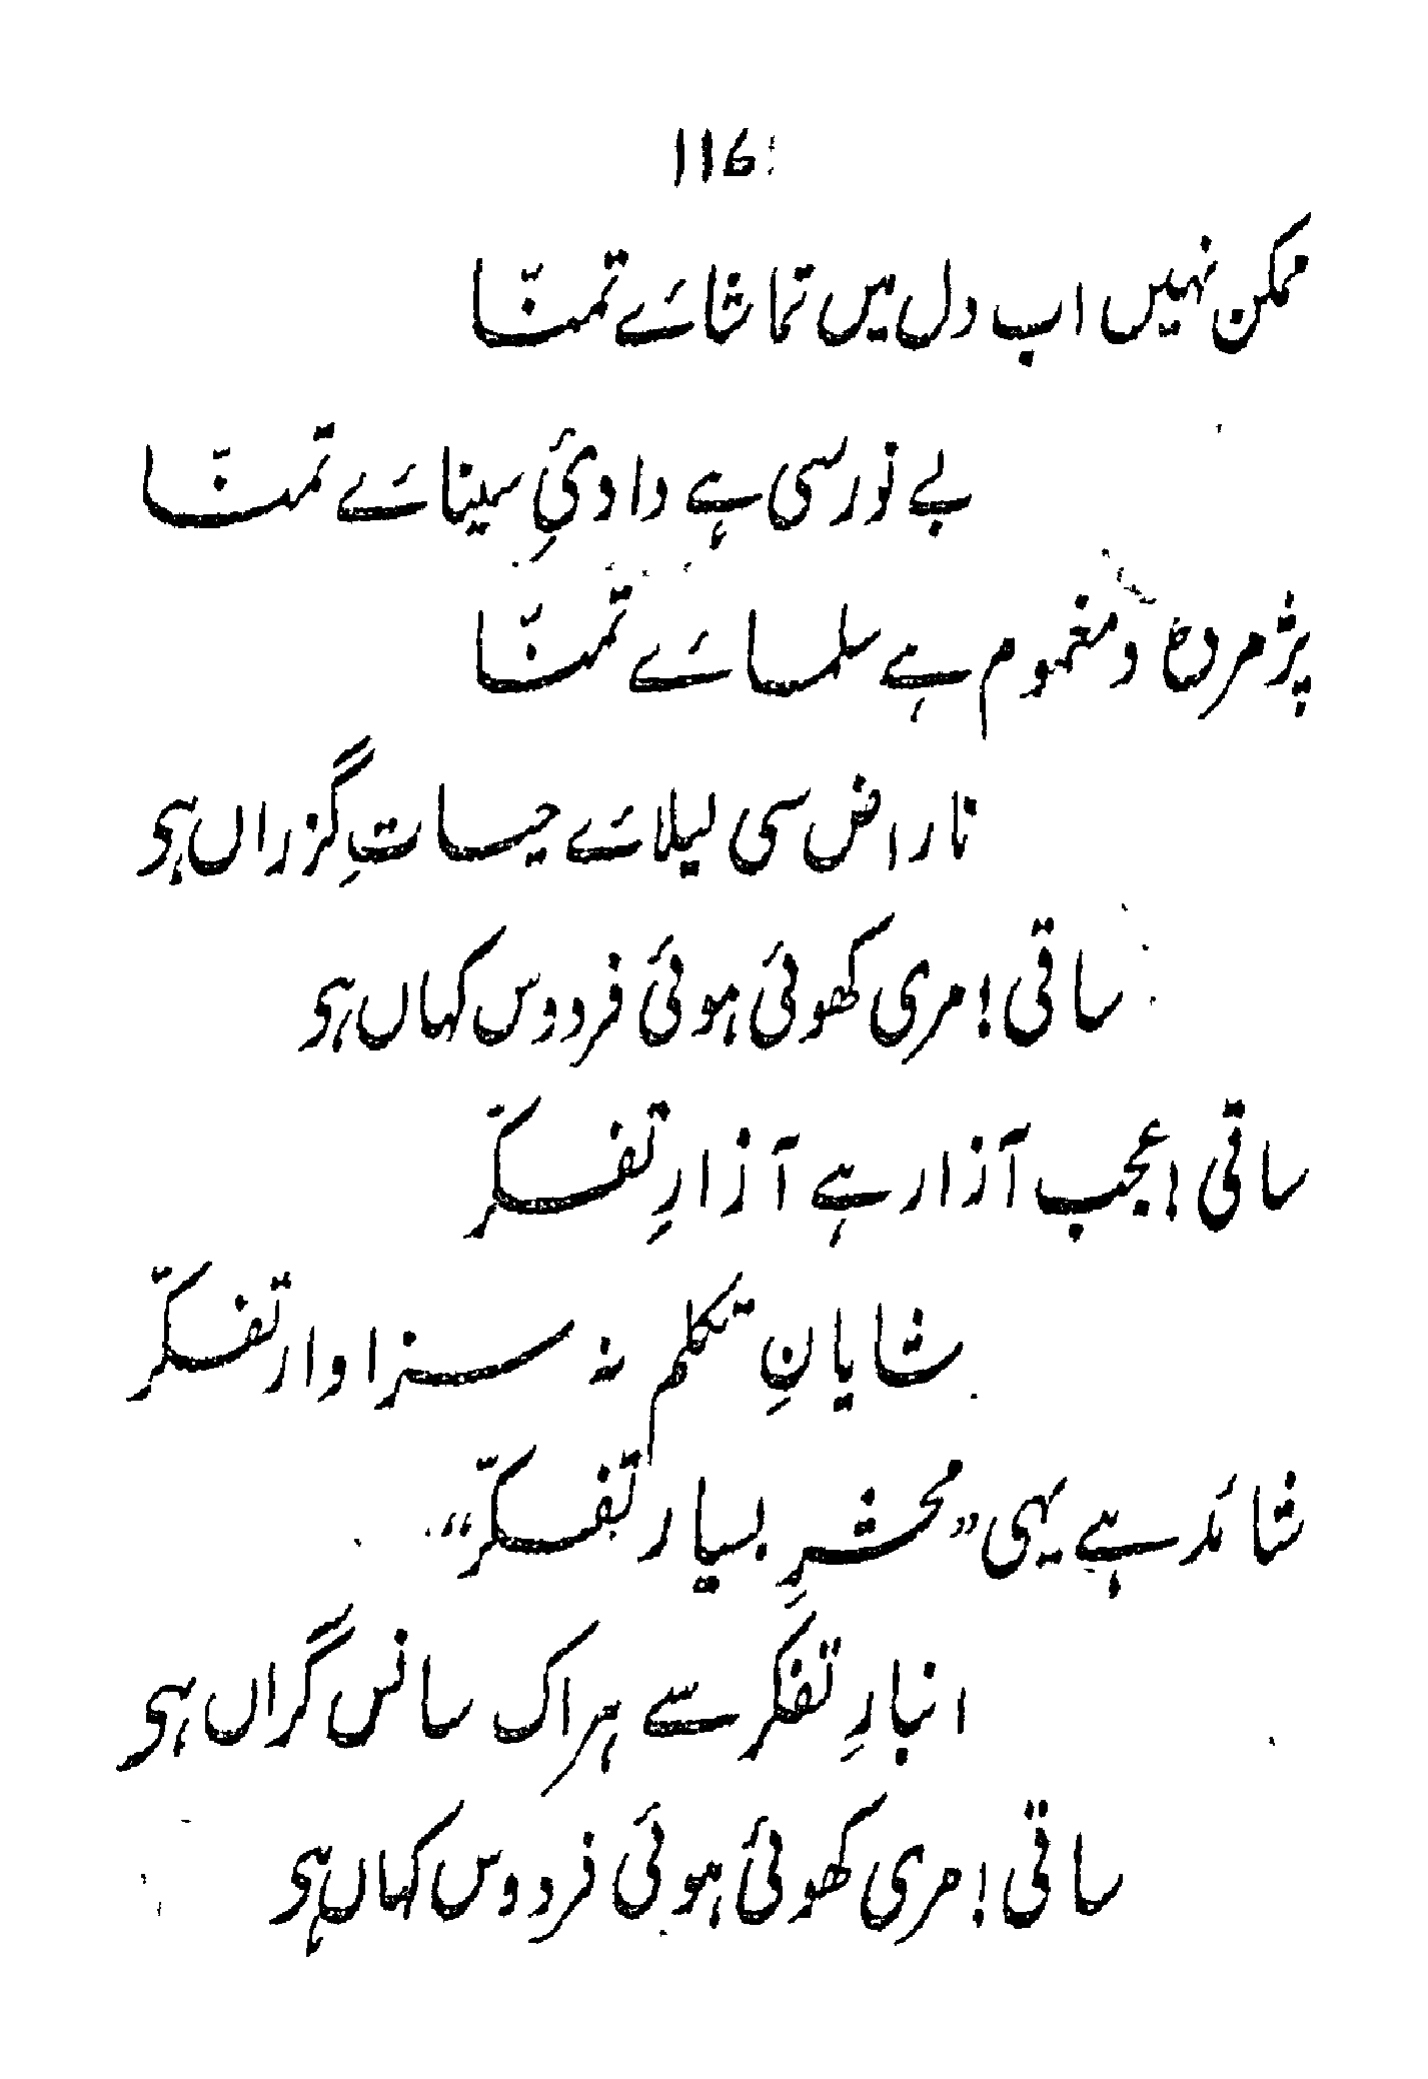 116
ممکن نہیں اب دل میں تماشائے تمنّا
بے نور سی ہے وادئِ سینائے تمنّا
پژمردہ و مغموم ہے سلمائے تمنّا
ناراض سی لیلائے حیاتِ گزراں ہی
ساقی! مری کھوئی ہوئی فردوس کہاں ہی
ساقی! عجب آزار ہے آزارِ تفکّر
شایانِ تکلم نہ سزاوار تفکّر
شائد ہے یہی "محشرِ بسیار تفکّر"
انبارِ تفکر سے ہر اک سانس گراں ہی
ساقی! مری کھوئی ہوئی فردوس کہاں ہی